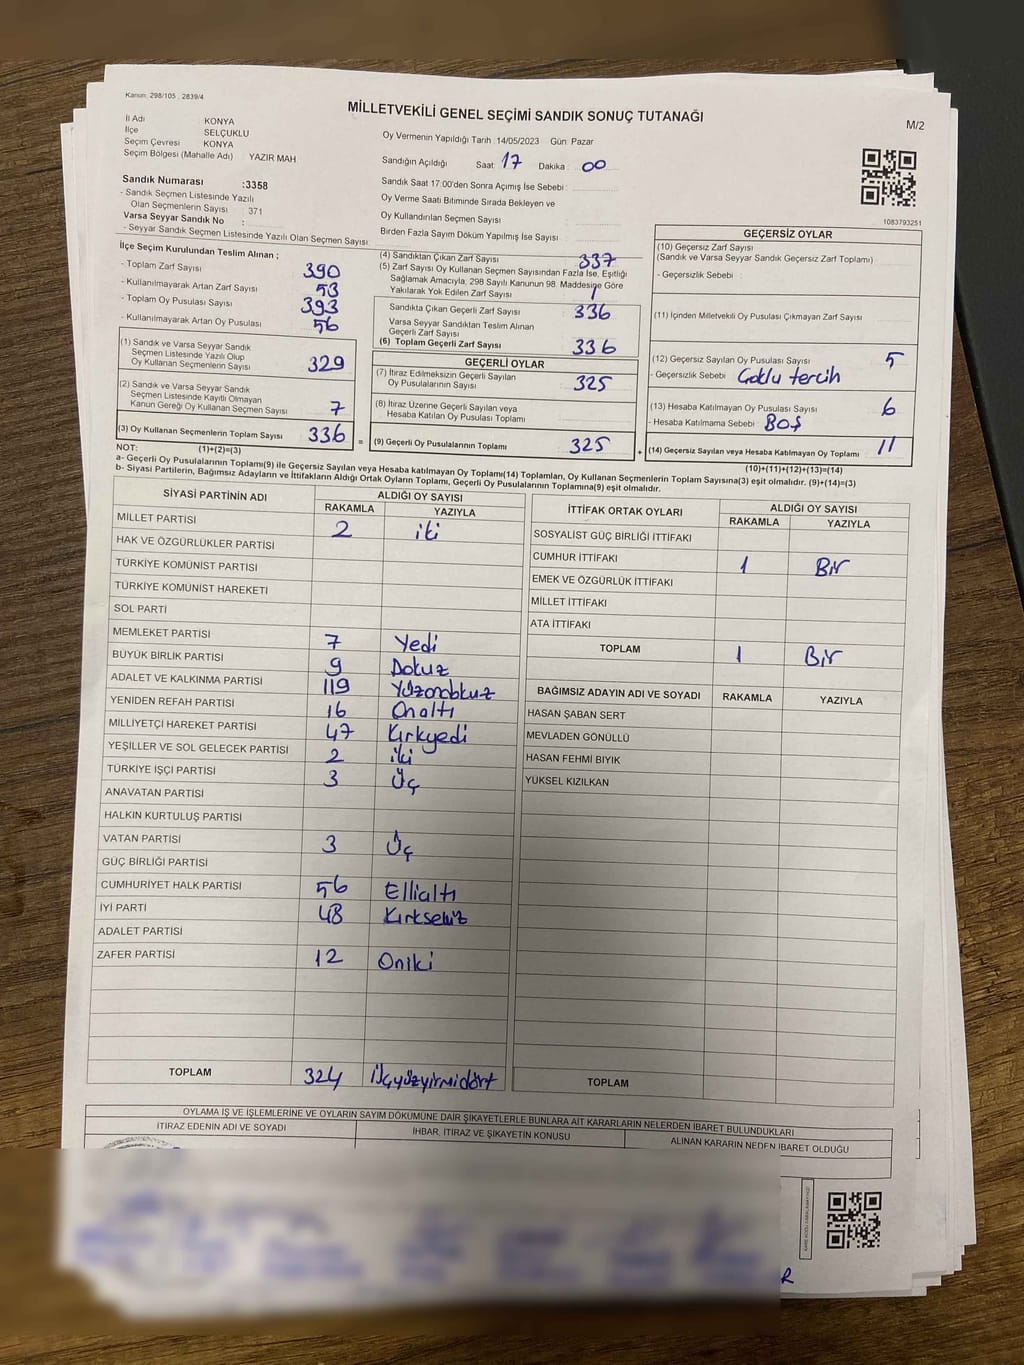 Kanun: 298/105 , 2839/4
MİLLETVEKİLİ GENEL SEÇİMİ SANDIK SONUÇ TUTANAĞI
M/2
İl Adı : KONYA
İlçe : SELÇUKLU
Seçim Çevresi : KONYA
Seçim Bölgesi (Mahalle Adı) : YAZIR MAH
Oy Vermenin Yapıldığı Tarih :14/05/2023 Gün: Pazar
Sandığın Açıldığı Saat: 17 Dakika : 00
Sandık Numarası :3358
- Sandık Seçmen Listesinde Yazılı
Olan Seçmenlerin Sayısı : 371
Varsa Seyyar Sandık No :
- Seyyar Sandık Seçmen Listesinde Yazılı Olan Seçmen Sayısı:
Sandık Saat 17:00'den Sonra Açımış İse Sebebi :
Oy Verme Saati Bitiminde Sırada Bekleyen ve
Oy Kullandırılan Seçmen Sayısı
Birden Fazla Sayım Döküm Yapılmış İse Sayısı :
1083793251
İlçe Seçim Kurulundan Teslim Alınan ;
- Toplam Zarf Sayısı : 390
- Kullanılmayarak Artan Zarf Sayısı : 53
- Toplam Oy Pusulası Sayısı : 393
- Kullanılmayarak Artan Oy Pusulası : 56
(1) Sandık ve Varsa Seyyar Sandık
Seçmen Listesinde Yazılı Olup
Oy Kullanan Seçmenlerin Sayısı 329
(2) Sandık ve Varsa Seyyar Sandık
Seçmen Listesinde Kayıtlı Olmayan
Kanun Gereği Oy Kullanan Seçmen Sayısı 7
(3) Oy Kullanan Seçmenlerin Toplam Sayısı 336
(1)+(2)=(3)
(4) Sandıktan Çıkan Zarf Sayısı 337
(5) Zarf Sayısı Oy Kullanan Seçmen Sayısından Fazla İse, Eşitliği
Sağlamak Amacıyla, 298 Sayılı Kanunun 98. Maddesine Göre
Yakılarak Yok Edilen Zarf Sayısı 1
Sandıkta Çıkan Geçerli Zarf Sayısı : 336
Varsa Seyyar Sandıktan Teslim Alınan
Geçerli Zarf Sayısı
(6) Toplam Geçerli Zarf Sayısı 336
GEÇERLİ OYLAR
(7) İtiraz Edilmeksizin Geçerli Sayılan
Oy Pusulalarının Sayısı : 325
(8) İtiraz Üzerine Geçerli Sayılan veya
Hesaba Katılan Oy Pusulası Toplamı
= (9) Geçerli Oy Pusulalarının Toplamı : 325
GEÇERSİZ OYLAR
(10) Geçersiz Zarf Sayısı
(Sandık ve Varsa Seyyar Sandık Geçersiz Zarf Toplamı)
- Geçersizlik Sebebi :
(11) İçinden Milletvekili Oy Pusulası Çıkmayan Zarf Sayısı
(12) Geçersiz Sayılan Oy Pusulası Sayısı 5
- Geçersizlik Sebebi : Çoklu tercih
(13) Hesaba Katılmayan Oy Pusulası Sayısı 6
- Hesaba Katılmama Sebebi : BOŞ
+ (14) Geçersiz Sayılan veya Hesaba Katılmayan Oy Toplamı 11
(10)+(11)+(12)+(13)=(14)
NOT:
a- Geçerli Oy Pusulalarının Toplamı(9) ile Geçersiz Sayılan veya Hesaba katılmayan Oy Toplamı(14) Toplamları, Oy Kullanan Seçmenlerin Toplam Sayısına(3) eşit olmalıdır. (9)+(14)=(3)
b- Siyasi Partilerin, Bağımsız Adayların ve İttifakların Aldığı Ortak Oyların Toplamı, Geçerli Oy Pusulalarının Toplamına(9) eşit olmalıdır.
SİYASİ PARTİNİN ADI ALDIĞI OY SAYISI
RAKAMLA YAZIYLA
MİLLET PARTİSİ 2 iki
HAK VE ÖZGÜRLÜKLER PARTİSİ
TÜRKİYE KOMÜNİST PARTİSİ
TÜRKİYE KOMÜNİST HAREKETİ
SOL PARTİ
MEMLEKET PARTİSİ 7 Yedi
BÜYÜK BİRLİK PARTİSİ 9 Dokuz
ADALET VE KALKINMA PARTİSİ 119 Yüzondokuz
YENİDEN REFAH PARTİSİ 16 Onaltı
MİLLİYETÇİ HAREKET PARTİSİ 47 Kırkyedi
YEŞİLLER VE SOL GELECEK PARTİSİ 2 iki
TÜRKİYE İŞÇİ PARTİSİ 3 Üç
ANAVATAN PARTİSİ
HALKIN KURTULUŞ PARTİSİ
VATAN PARTİSİ 3 Üç
GÜÇ BİRLİĞİ PARTİSİ
CUMHURİYET HALK PARTİSİ 56 Ellialtı
İYİ PARTİ 48 Kırksekiz
ADALET PARTİSİ
ZAFER PARTİSİ 12 Oniki
TOPLAM 324 Üçyüzyirmidört
İTTİFAK ORTAK OYLARI ALDIĞI OY SAYISI
RAKAMLA YAZIYLA
SOSYALİST GÜÇ BİRLİĞİ İTTİFAKI
CUMHUR İTTİFAKI 1 Bir
EMEK VE ÖZGÜRLÜK İTTİFAKI
MİLLET İTTİFAKI
ATA İTTİFAKI
TOPLAM 1 Bir
BAĞIMSIZ ADAYIN ADI VE SOYADI RAKAMLA YAZIYLA
HASAN ŞABAN SERT
MEVLADEN GÖNÜLLÜ
HASAN FEHMİ BIYIK
YÜKSEL KIZILKAN
TOPLAM
OYLAMA İŞ VE İŞLEMLERİNE VE OYLARIN SAYIM DÖKÜMÜNE DAİR ŞİKAYETLERLE BUNLARA AİT KARARLARIN NELERDEN İBARET BULUNDUKLARI
İTİRAZ EDENİN ADI VE SOYADI İHBAR, İTİRAZ VE ŞİKAYETİN KONUSU ALINAN KARARIN NEDEN İBARET OLDUĞU
R